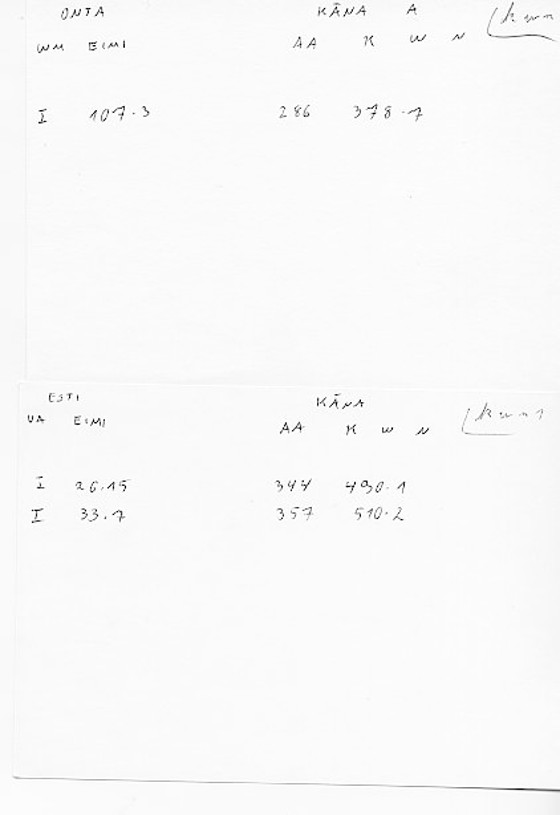 ONTA KĀNA A
WM EIMI AA K W N
I 107.3 286 378.7
ESTI KĀNA
VA EIMI AA K W N
I 26.15 344 490.1
I 33.7 357 510.2